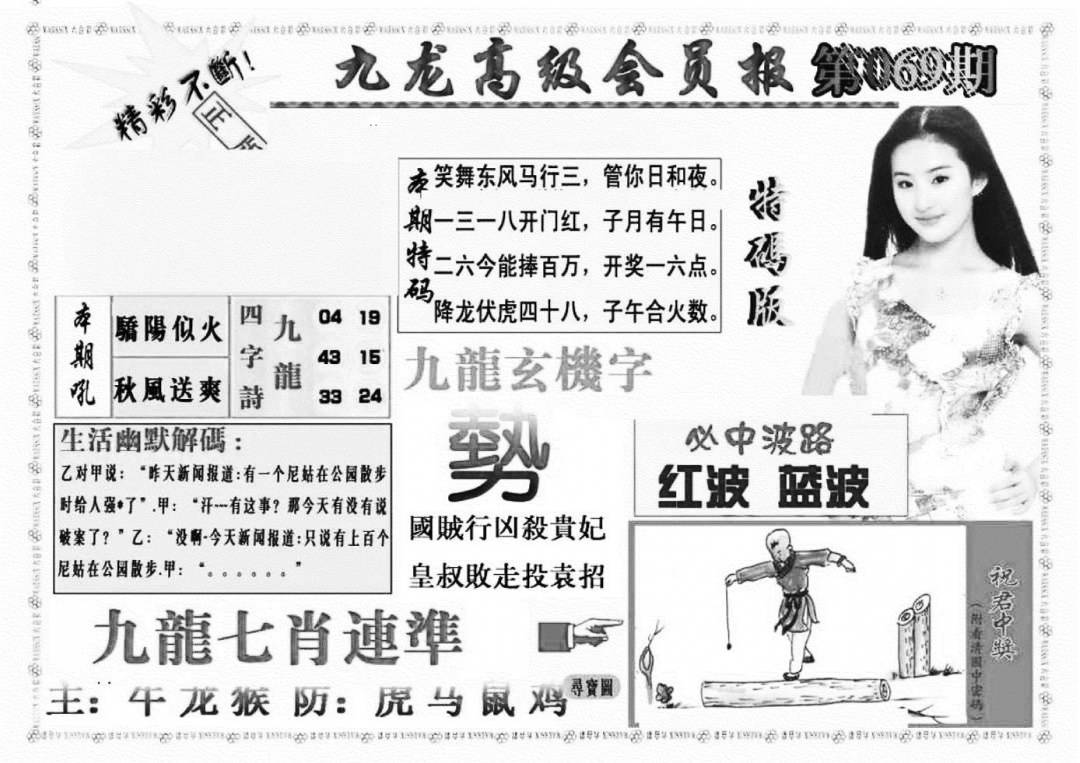 精彩不斷！
正版
九龙高级会员报 第069期
本期特码
笑舞东风马行三，管你日和夜。
一三一八开门红，子月有午日。
二六今能捧百万，开奖一六点。
降龙伏虎四十八，子午合火数。
特碼版
本期吼
驕陽似火
秋風送爽
四字詩
九龍
04 19
43 15
33 24
九龍玄機字
勢
國賊行凶殺貴妃
皇叔敗走投袁招
生活幽默解碼：
乙对甲说：“昨天新闻报道:有一个尼姑在公园散步
时给人强*了”.甲：“汗---有这事？那今天有没有说
破案了？”乙：“没啊-今天新闻报道:只说有上百个
尼姑在公园散步.甲：“。。。。。。”
必中波路
红波 蓝波
九龍七肖連準
主：牛龙猴 防：虎马鼠鸡
尋寶圖
祝君中獎
（附看清圖中密碼）